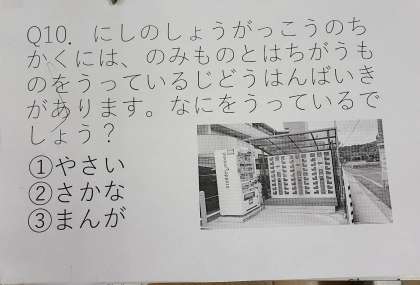 Q10. にしのしょうがっこうのち
かくには、のみものとはちがうも
のをうっているじどうはんばいき
があります。なにをうっているで
しょう？
①やさい
②さかな
③まんが